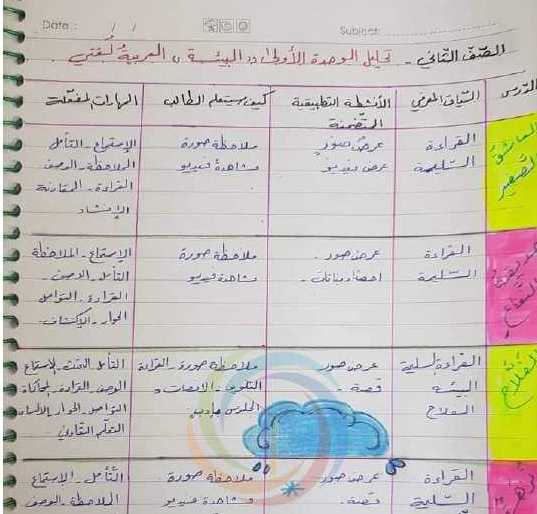 Date: / / Subject:
الصف الثاني - تحليل الوحدة الأولى (( البيئة )) العربية لغتي
الدرس السياق المعرفي الأنشطة التطبيقية المتضمنة كيف سيتعلم الطالب المهارات المفعلة
العاشق الصغير
القراءة السليمة
عرض صور
عرض فيديو
ملاحظة صورة
مشاهدة فيديو
الإستماع - التأمل
الملاحظة - الوصف
القراءة - المقارنة
الإنشاد
حديقة
القراءة السليمة
عرض صور -
احضار نباتات -
ملاحظة صورة
مشاهدة فيديو
الإستماع - الملاحظة
التأمل - الوصف -
القراءة - التواصل
الحوار - الإكتشاف
الفلاح
القراءة السليمة
البيئة
الفلاح
عرض صور
قصة -
ملاحظة صورة - القراءة
التلوين -
التأمل - التحدث - الاستماع
الوصف - القراءة -
التواصل - الحوار -
التعلم التعاوني
القراءة
السليمة
عرض صور
قصة -
ملاحظة صورة
مشاهدة فيديو
التأمل - الإستماع
الملاحظة - الوصف